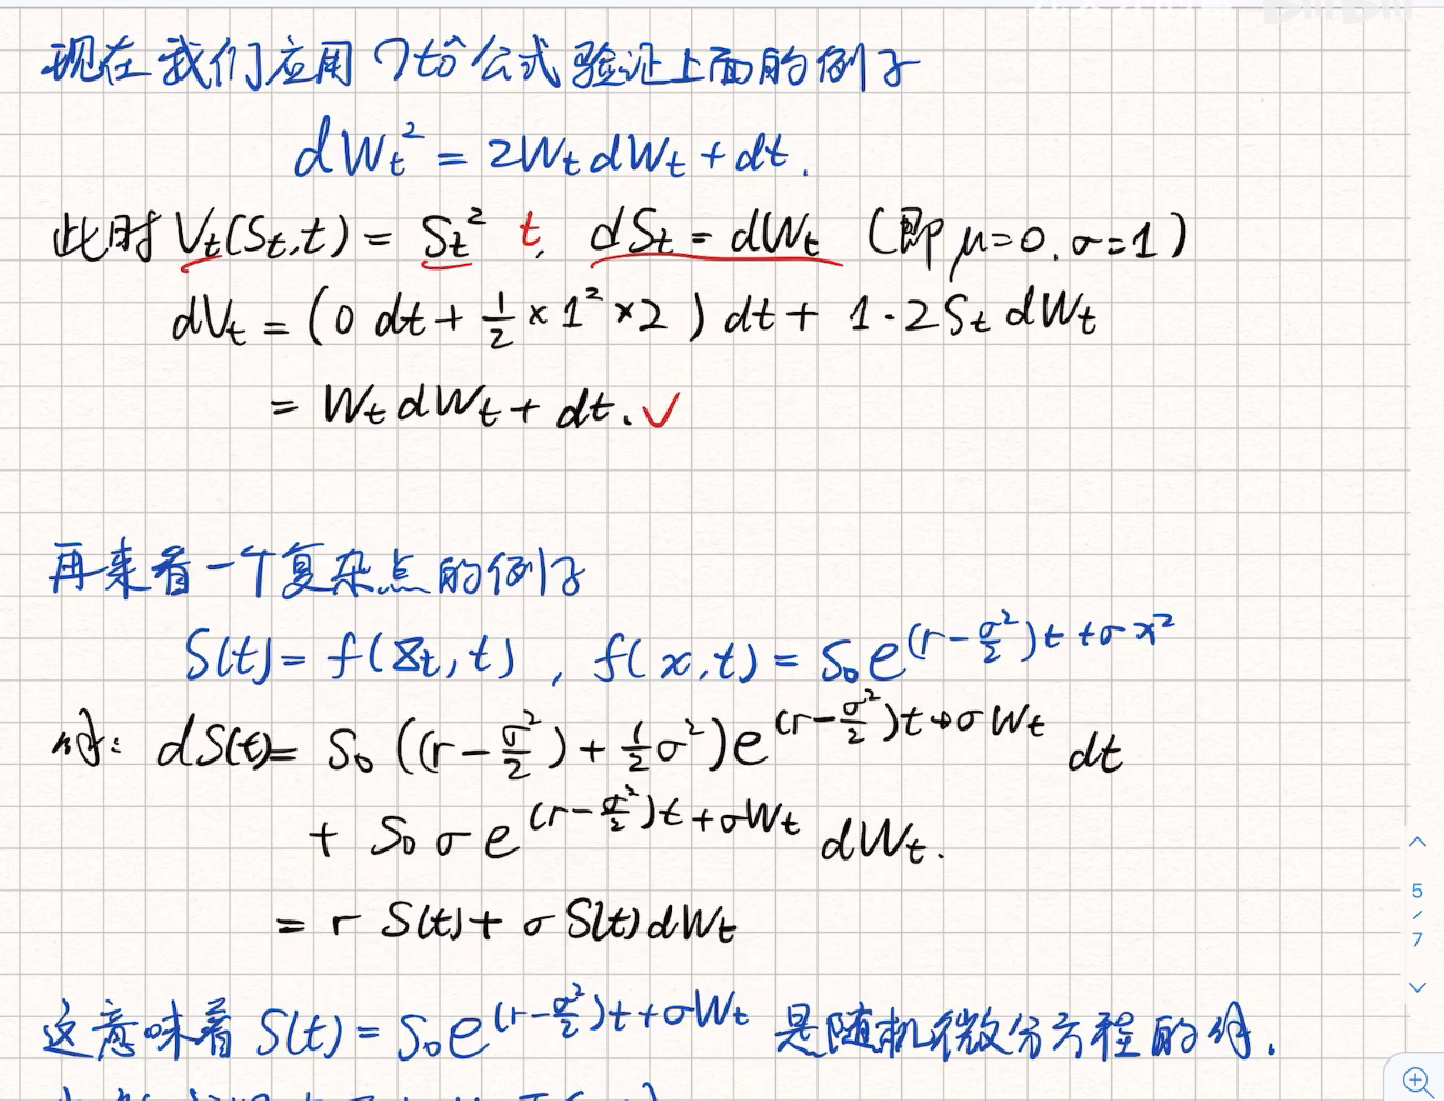 现在我们应用 Itô 公式验证上面的例子
dW_t² = 2W_t dW_t + dt.
此时 V_t(S_t,t) = S_t² t, dS_t = dW_t (即 μ=0, σ=1)
dV_t = (0 dt + 1/2 × 1² × 2) dt + 1·2S_t dW_t
= W_t dW_t + dt. ✓
再来看一个复杂点的例子
S(t) = f(X_t, t), f(x,t) = S_0 e^{(r-σ²/2)t + σx²}
dS(t) = S_0 ((r-σ²/2) + 1/2 σ²) e^{(r-σ²/2)t + σW_t} dt
+ S_0 σ e^{(r-σ²/2)t + σW_t} dW_t.
= r S(t) + σ S(t) dW_t
这意味着 S(t) = S_0 e^{(r-σ²/2)t + σW_t} 是随机微分方程的解.
5
/
7